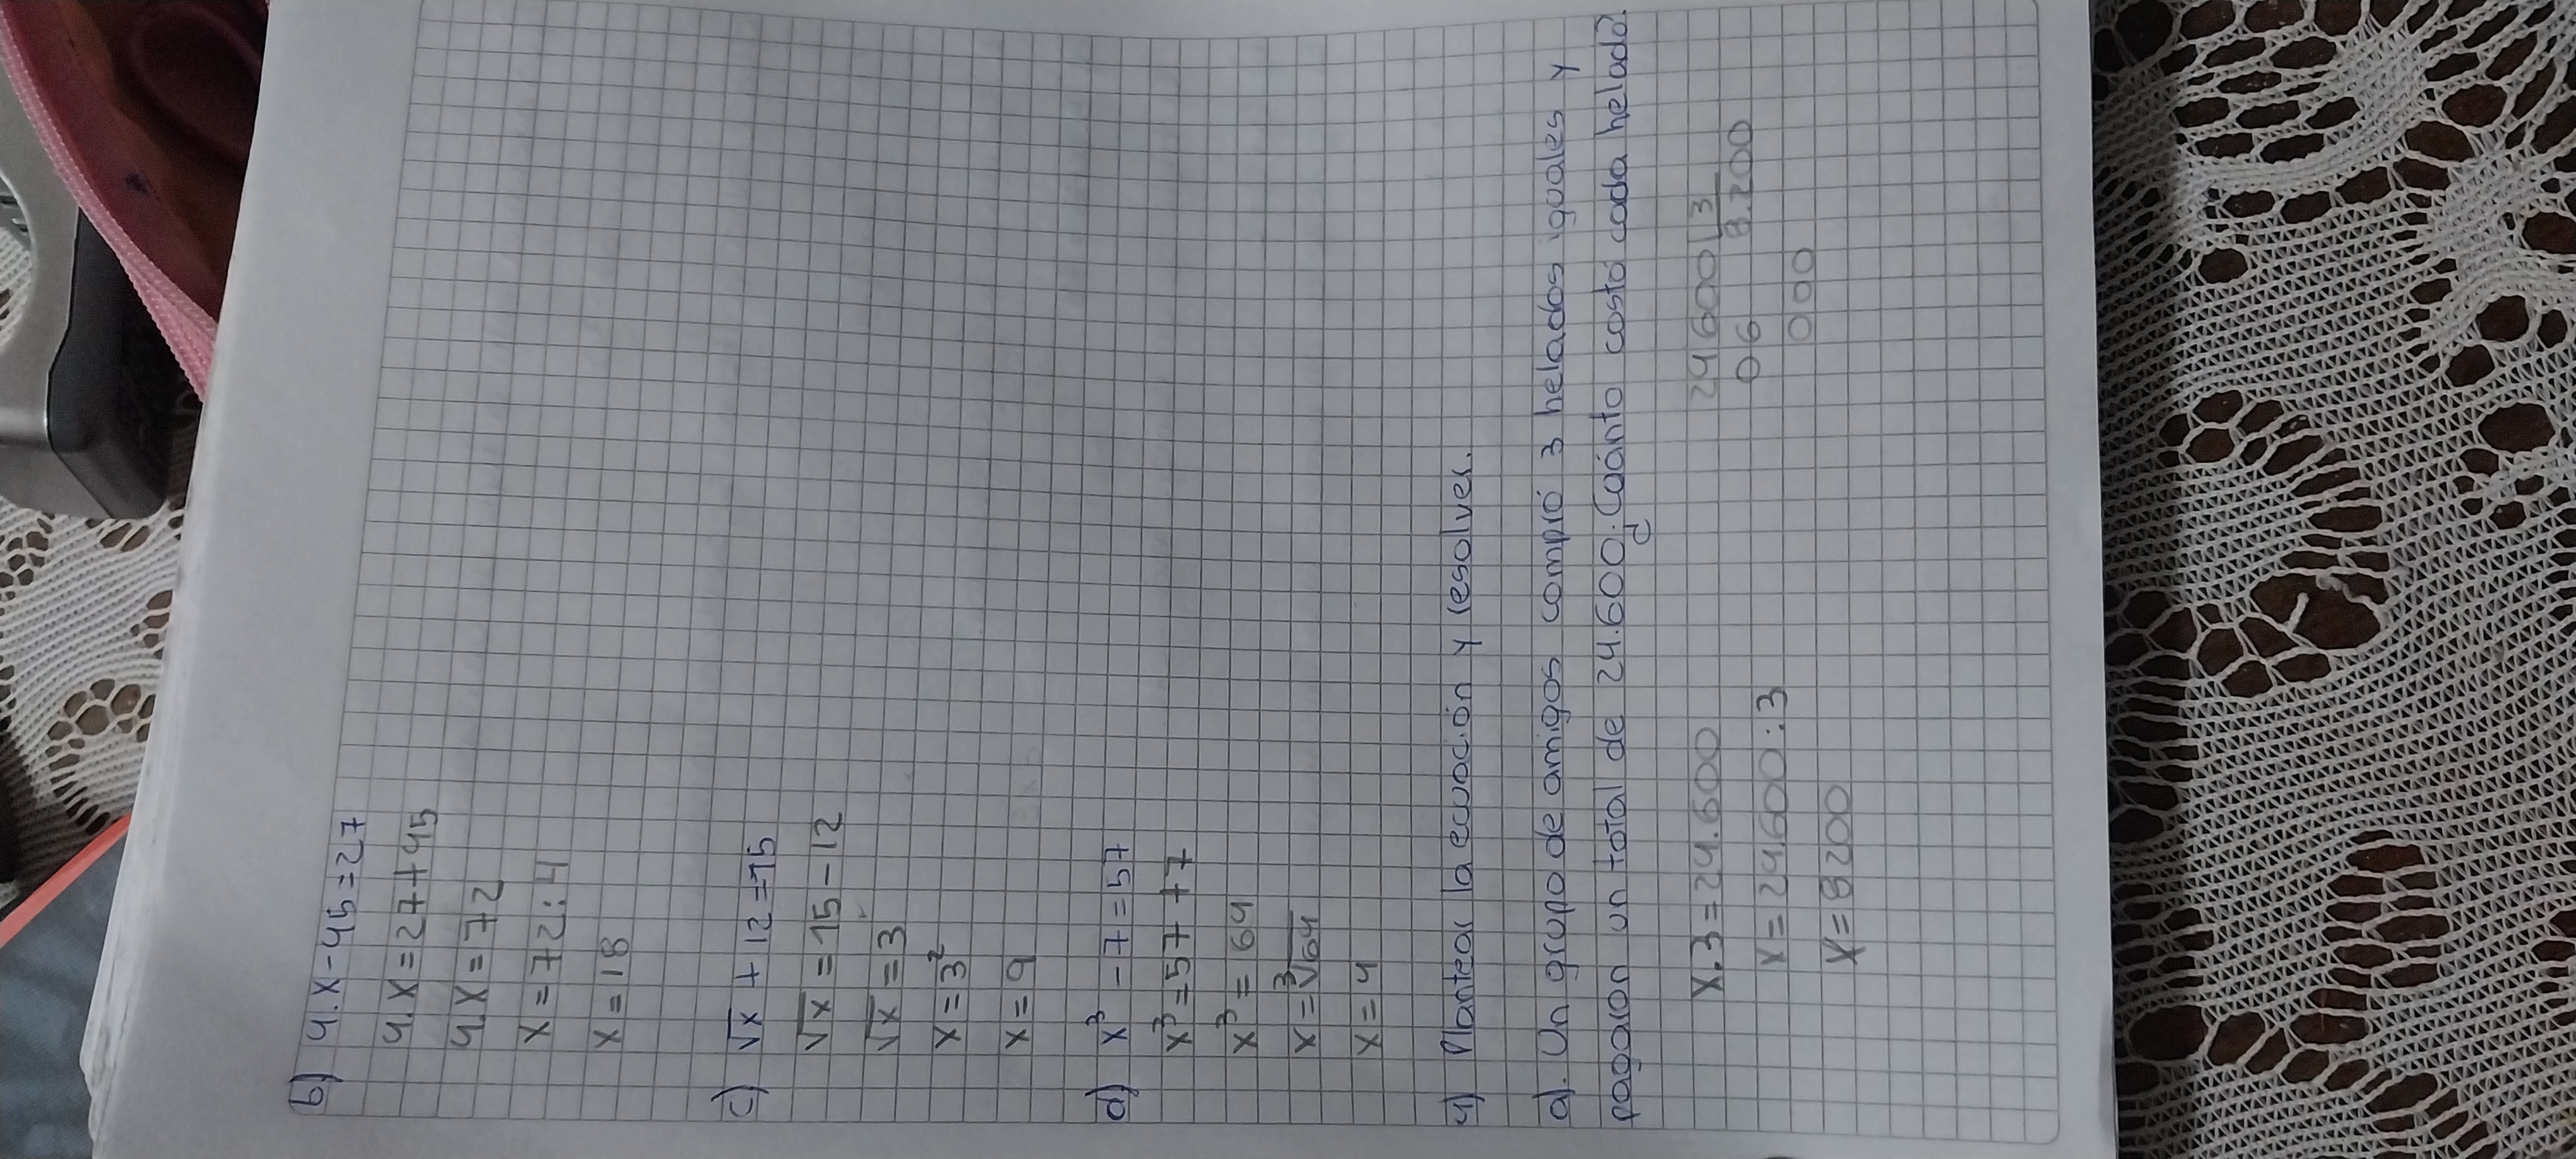 b) 4.x-45=27
4.x=27+45
4.x=72
x=72:4
x=18
c) √x+12=15
√x=15-12
√x=3
x=3²
x=9
d) x³-7=57
x³=57+7
x³=64
x=³√64
x=4
4) Plantear la ecuación y resolver.
a). Un grupo de amigos compró 3 helados iguales y
pagaron un total de 24.600. ¿Cuánto costó cada helado?
x.3=24.600 24600 | 3
x=24.600:3 06 8.200
x=8200 000